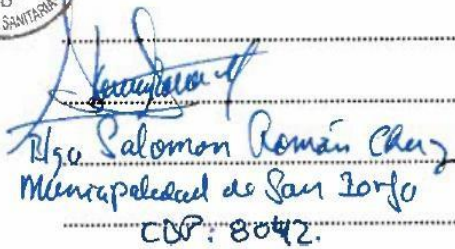 SANITARIA
Blgo Salomon Román Chuz
Municipalidad de San Borja
CBP: 8042.